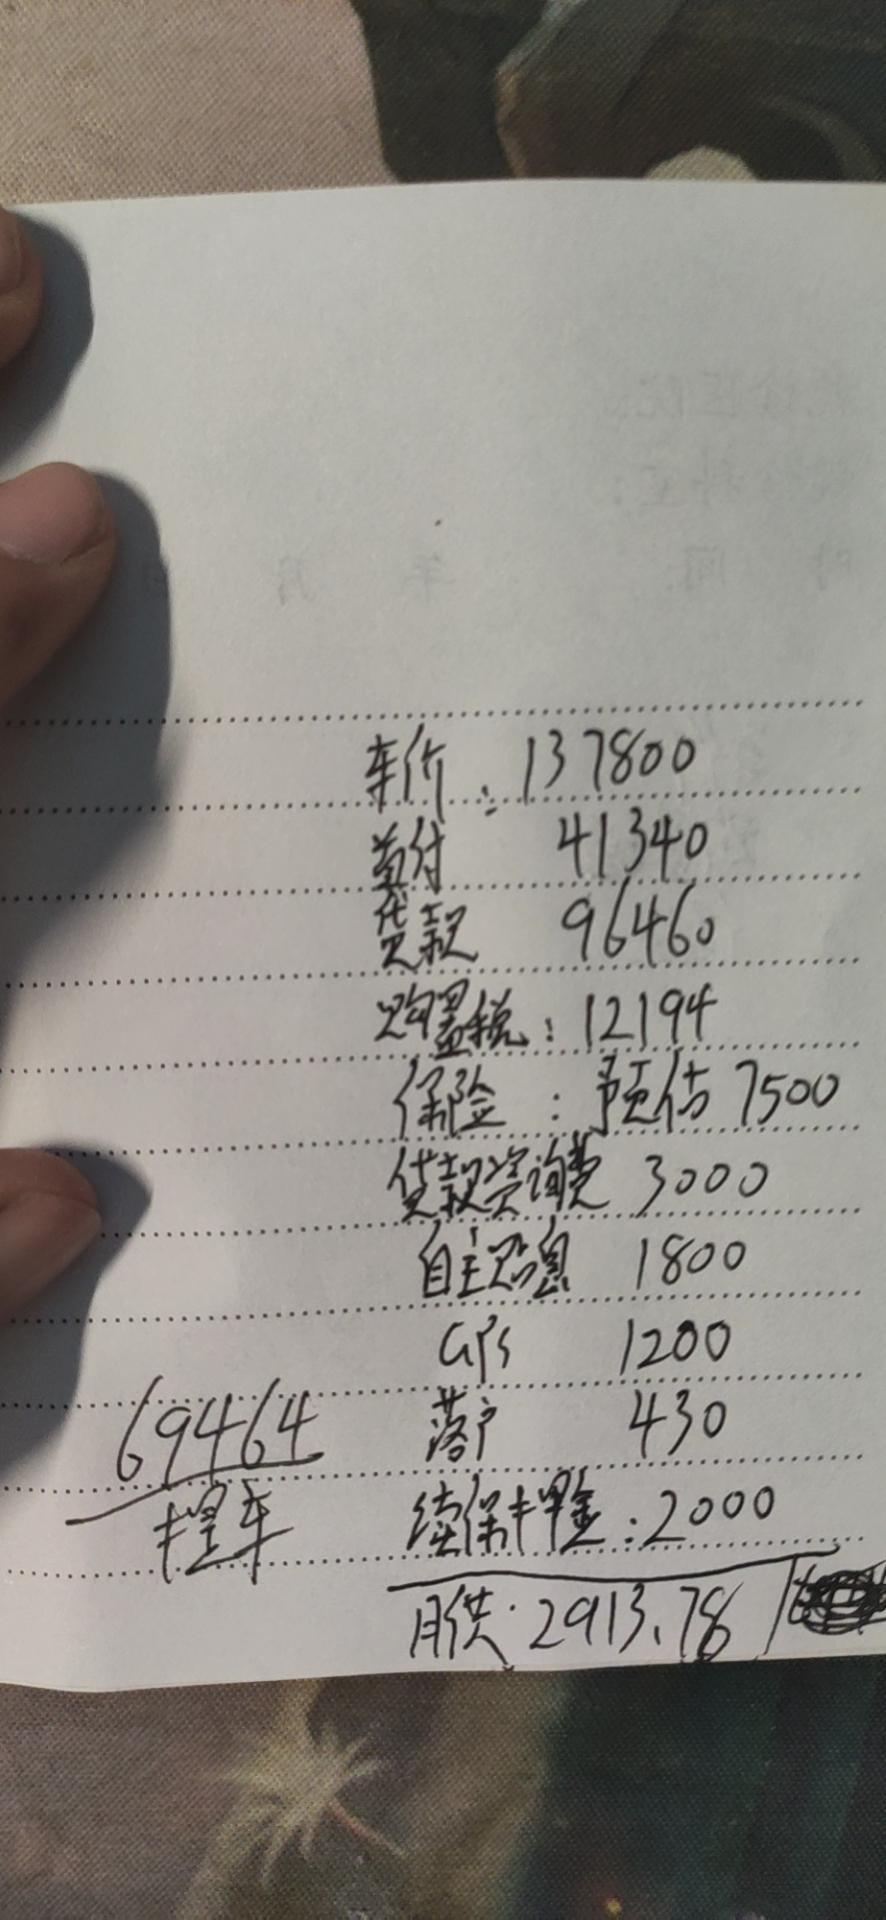 车价：137800
首付 41340
贷款 96460
购置税：12194
保险：预估7500
贷款资询费 3000
自主贴息 1800
GPS 1200
落户 430
续保押金：2000
月供：2913.78
69464
提车